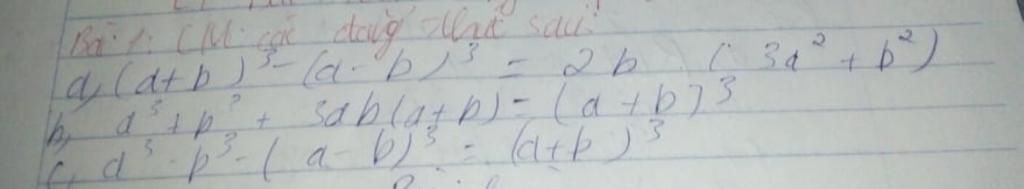 Bài 1: CM các đẳng thức sau:
a, (a+b)³ - (a-b)³ = 2b (3a² + b²)
b, a³ + b³ + 3ab(a+b) = (a+b)³
c, a³ - b³ - (a-b)³ = (a+b)³